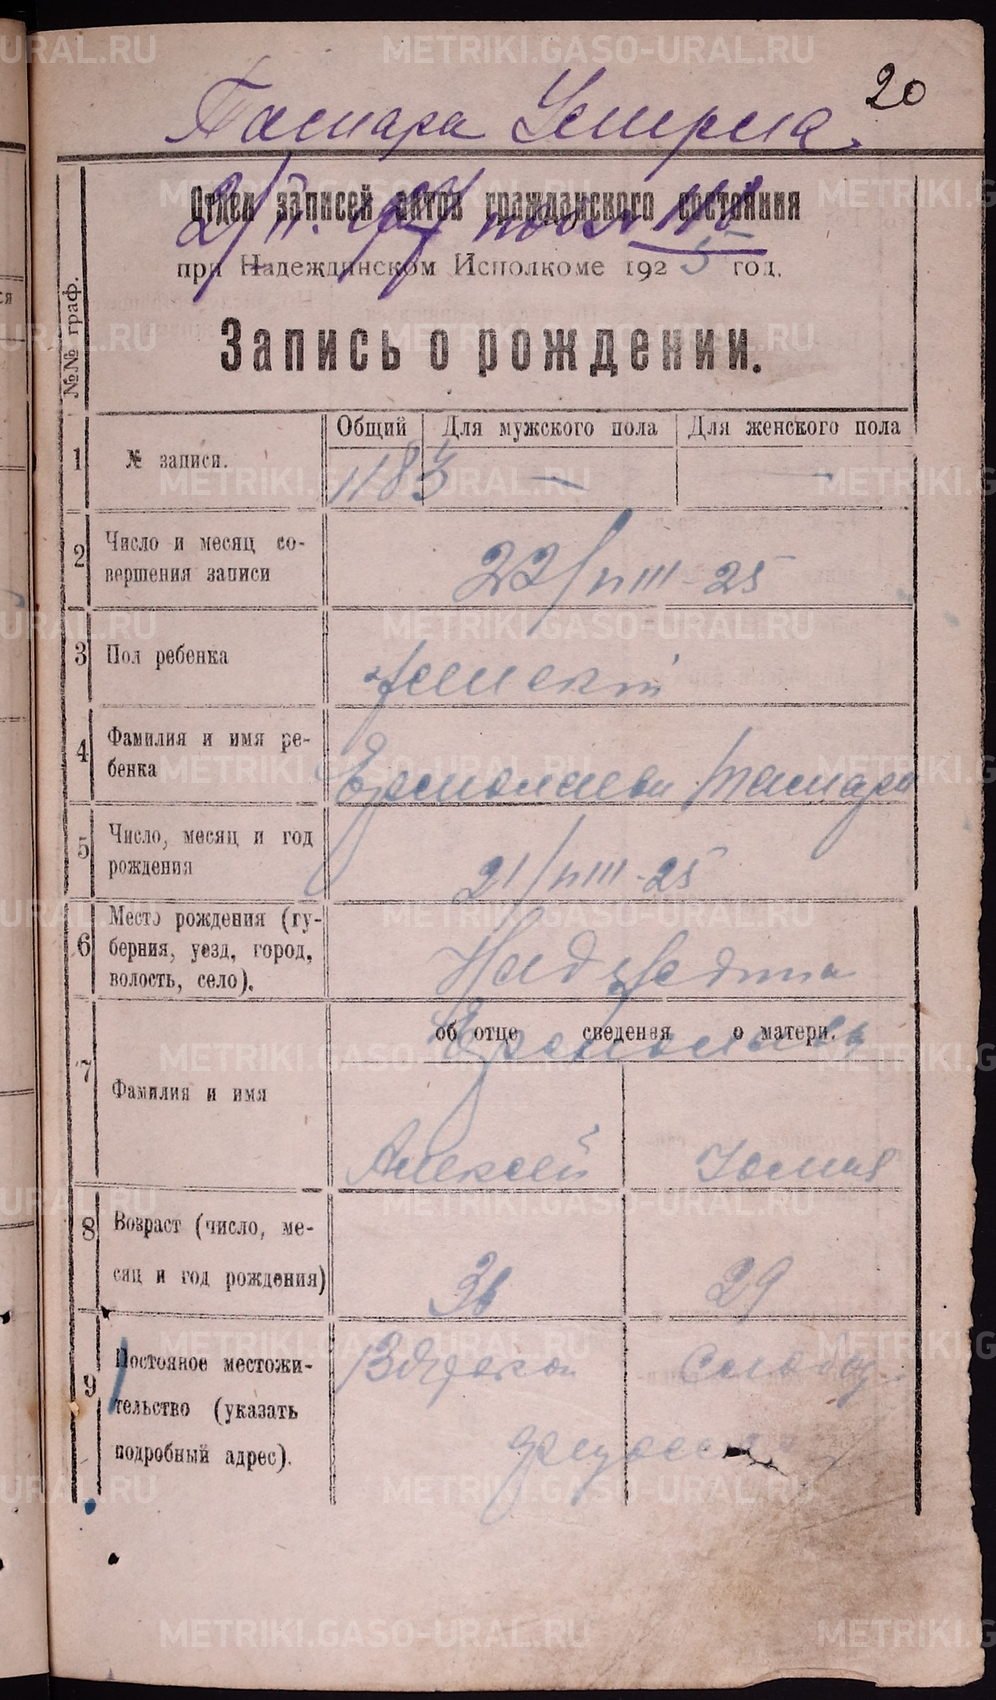 20
Тамара Умерла.
Отдел записей актов гражданского состояния
2/II. 1927 под №
при Надеждинском Исполкоме 1925 год.
Запись о рождении.
№№ граф.
Общий Для мужского пола Для женского пола
1 № записи. 1183 — —
2 Число и месяц со-
вершения записи 22/VIII-25
3 Пол ребенка женский
4 Фамилия и имя ре-
бенка Ермолаева Тамара
5 Число, месяц и год
рождения 21/VIII-25
6 Место рождения (гу-
берния, уезд, город,
волость, село).
об отце сведения о матери.
7 Фамилия и имя
Алексей Юлия
8 Возраст (число, ме-
сяц и год рождения) 36 29
9 Постояное местожи-
тельство (указать
подробный адрес).
METRIKI.GASO-URAL.RU